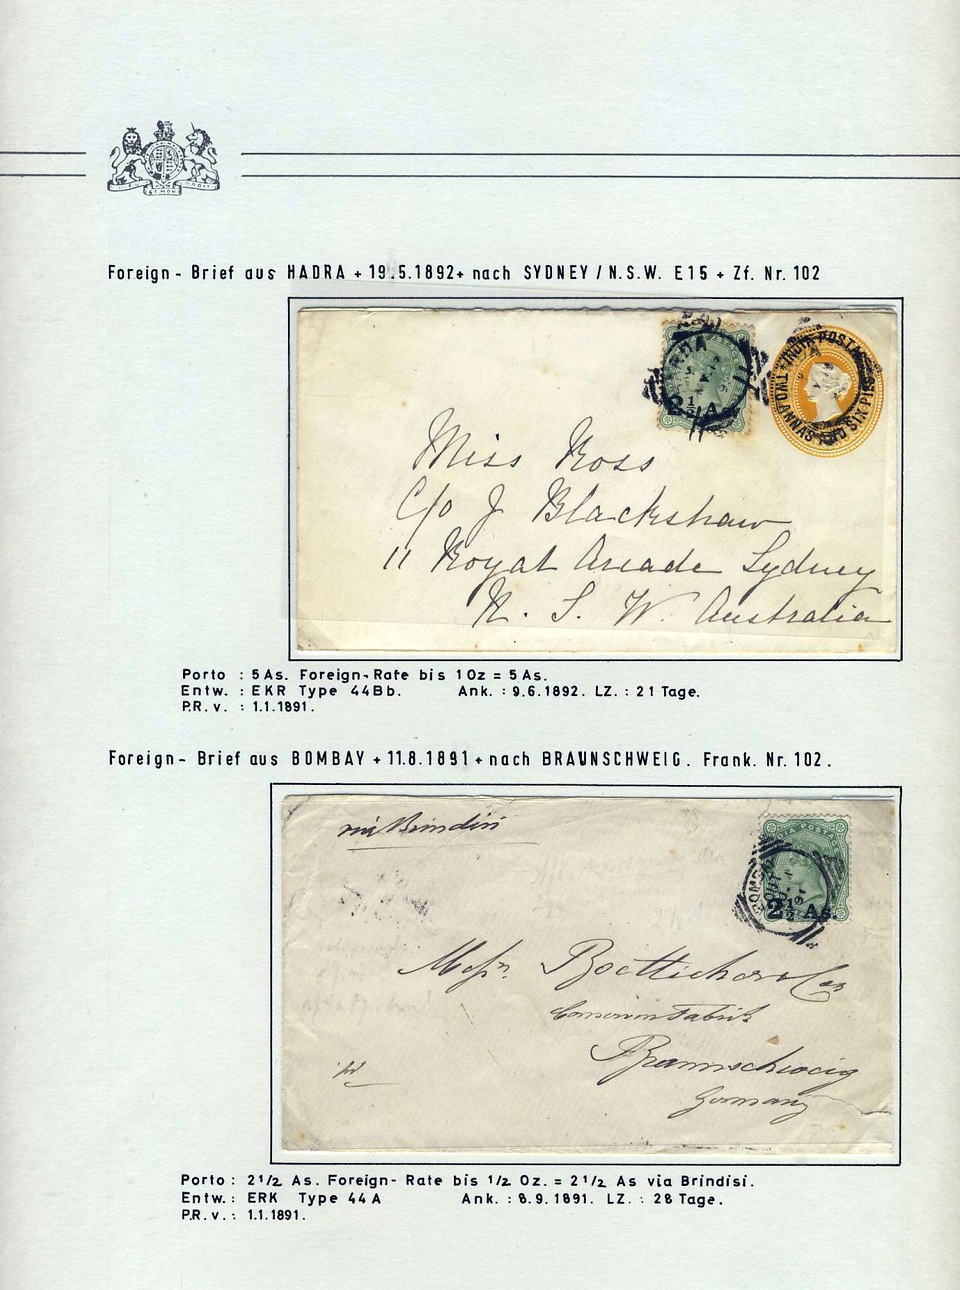 Foreign - Brief aus HADRA + 19.5.1892 + nach SYDNEY / N.S.W. E15 + Zf. Nr. 102
INDIA POSTAGE
TWO ANNAS AND SIX PIES
2½ As.
Miss Ross
C/o J Blackshaw
11 Royal Arcade Sydney
N. S. W. Australia
Porto : 5 As. Foreign-Rate bis 1 Oz = 5 As.
Entw. : EKR Type 44Bb. Ank. : 9.6.1892. LZ. : 21 Tage.
P.R. v. : 1.1.1891.
Foreign - Brief aus BOMBAY + 11.8.1891 + nach BRAUNSCHWEIG. Frank. Nr. 102.
via Brindisi
INDIA POSTAGE
BOMBAY
2½ As.
Messrs. Boetticher & Co
Fabrik
Braunschweig
Germany
Porto : 2 1/2 As. Foreign - Rate bis 1/2 Oz. = 2 1/2 As via Brindisi.
Entw. : ERK Type 44 A Ank. : 8.9.1891. LZ. : 28 Tage.
P.R. v. : 1.1.1891.